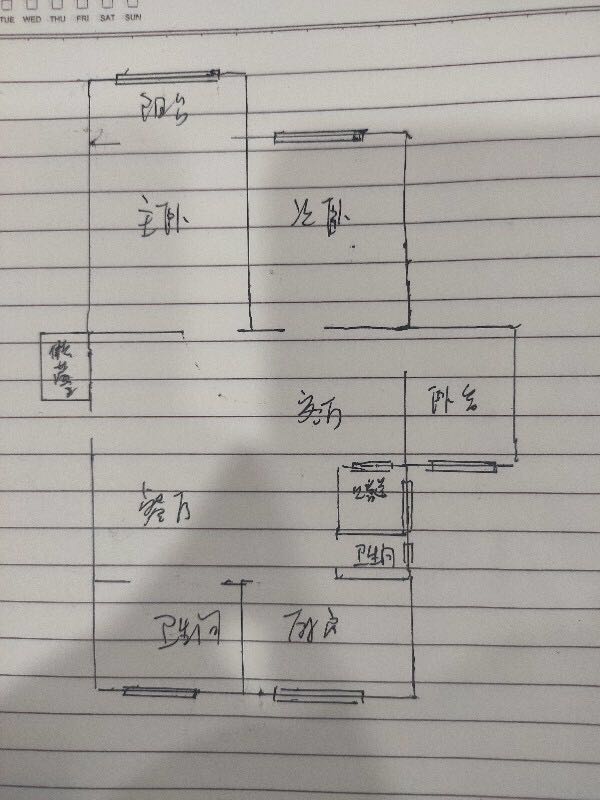 TUE WED THU FRI SAT SUN
阳台
主卧
次卧
客厅
卧室
餐厅
卫生间
卫生间
厨房